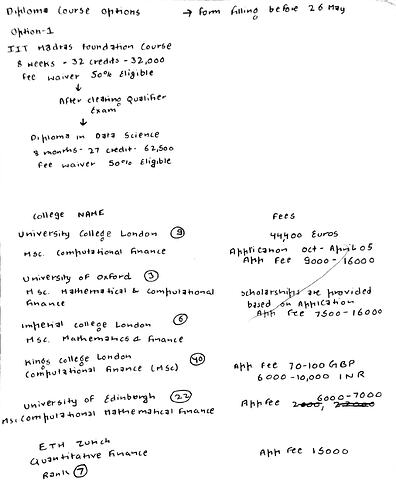 Diploma Course Options → Form filling before 26 May
Option-1
IIT Madras Foundation Course
8 weeks - 32 credits - 32,000
Fee waiver 50% Eligible
↓
After clearing Qualifier
Exam
↓
Diploma in Data Science
8 months - 27 credit - 62,500
Fee waiver 50% Eligible
College NAME Fees
University College London (9) 44,400 Euros
Msc. Computational Finance Application Oct - April 05
App Fee 9000 - 16000
University of Oxford (3)
Msc. Mathematical & Computational Scholarships are provided
Finance based on Application
App Fee 7500 - 16000
Imperial College London (6)
Msc. Mathematics & Finance
Kings College London (40) App Fee 70-100 GBP
Computational Finance (Msc) 6000 - 10,000 INR
University of Edinburgh (22) App Fee 6000-7000
Msc Computational Mathematical Finance
ETH Zurich
Quantitative Finance App Fee 15000
Rank (7)